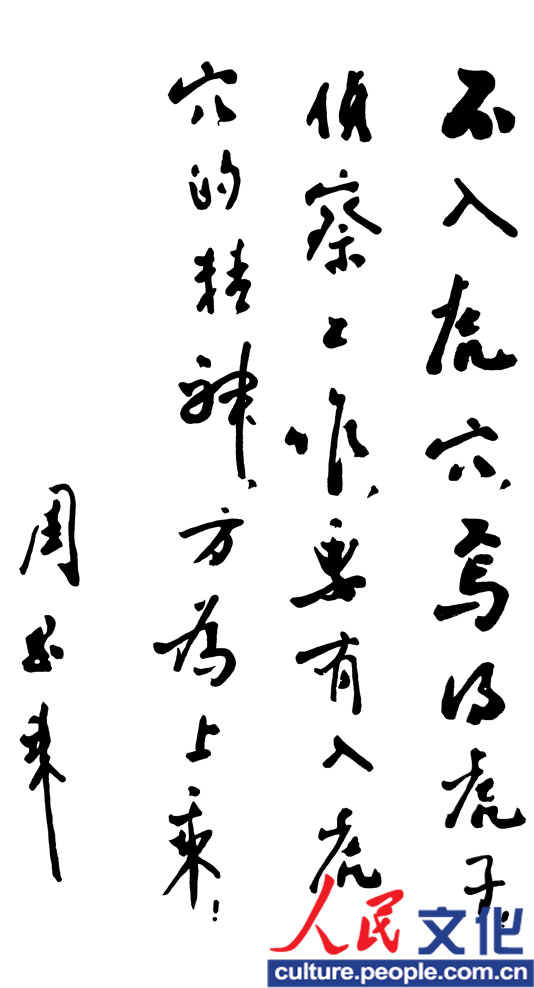 不入虎穴,焉得虎子!
侦察工作,要有入虎
穴的精神,方为上乘!
周恩来
人民文化
culture.people.com.cn